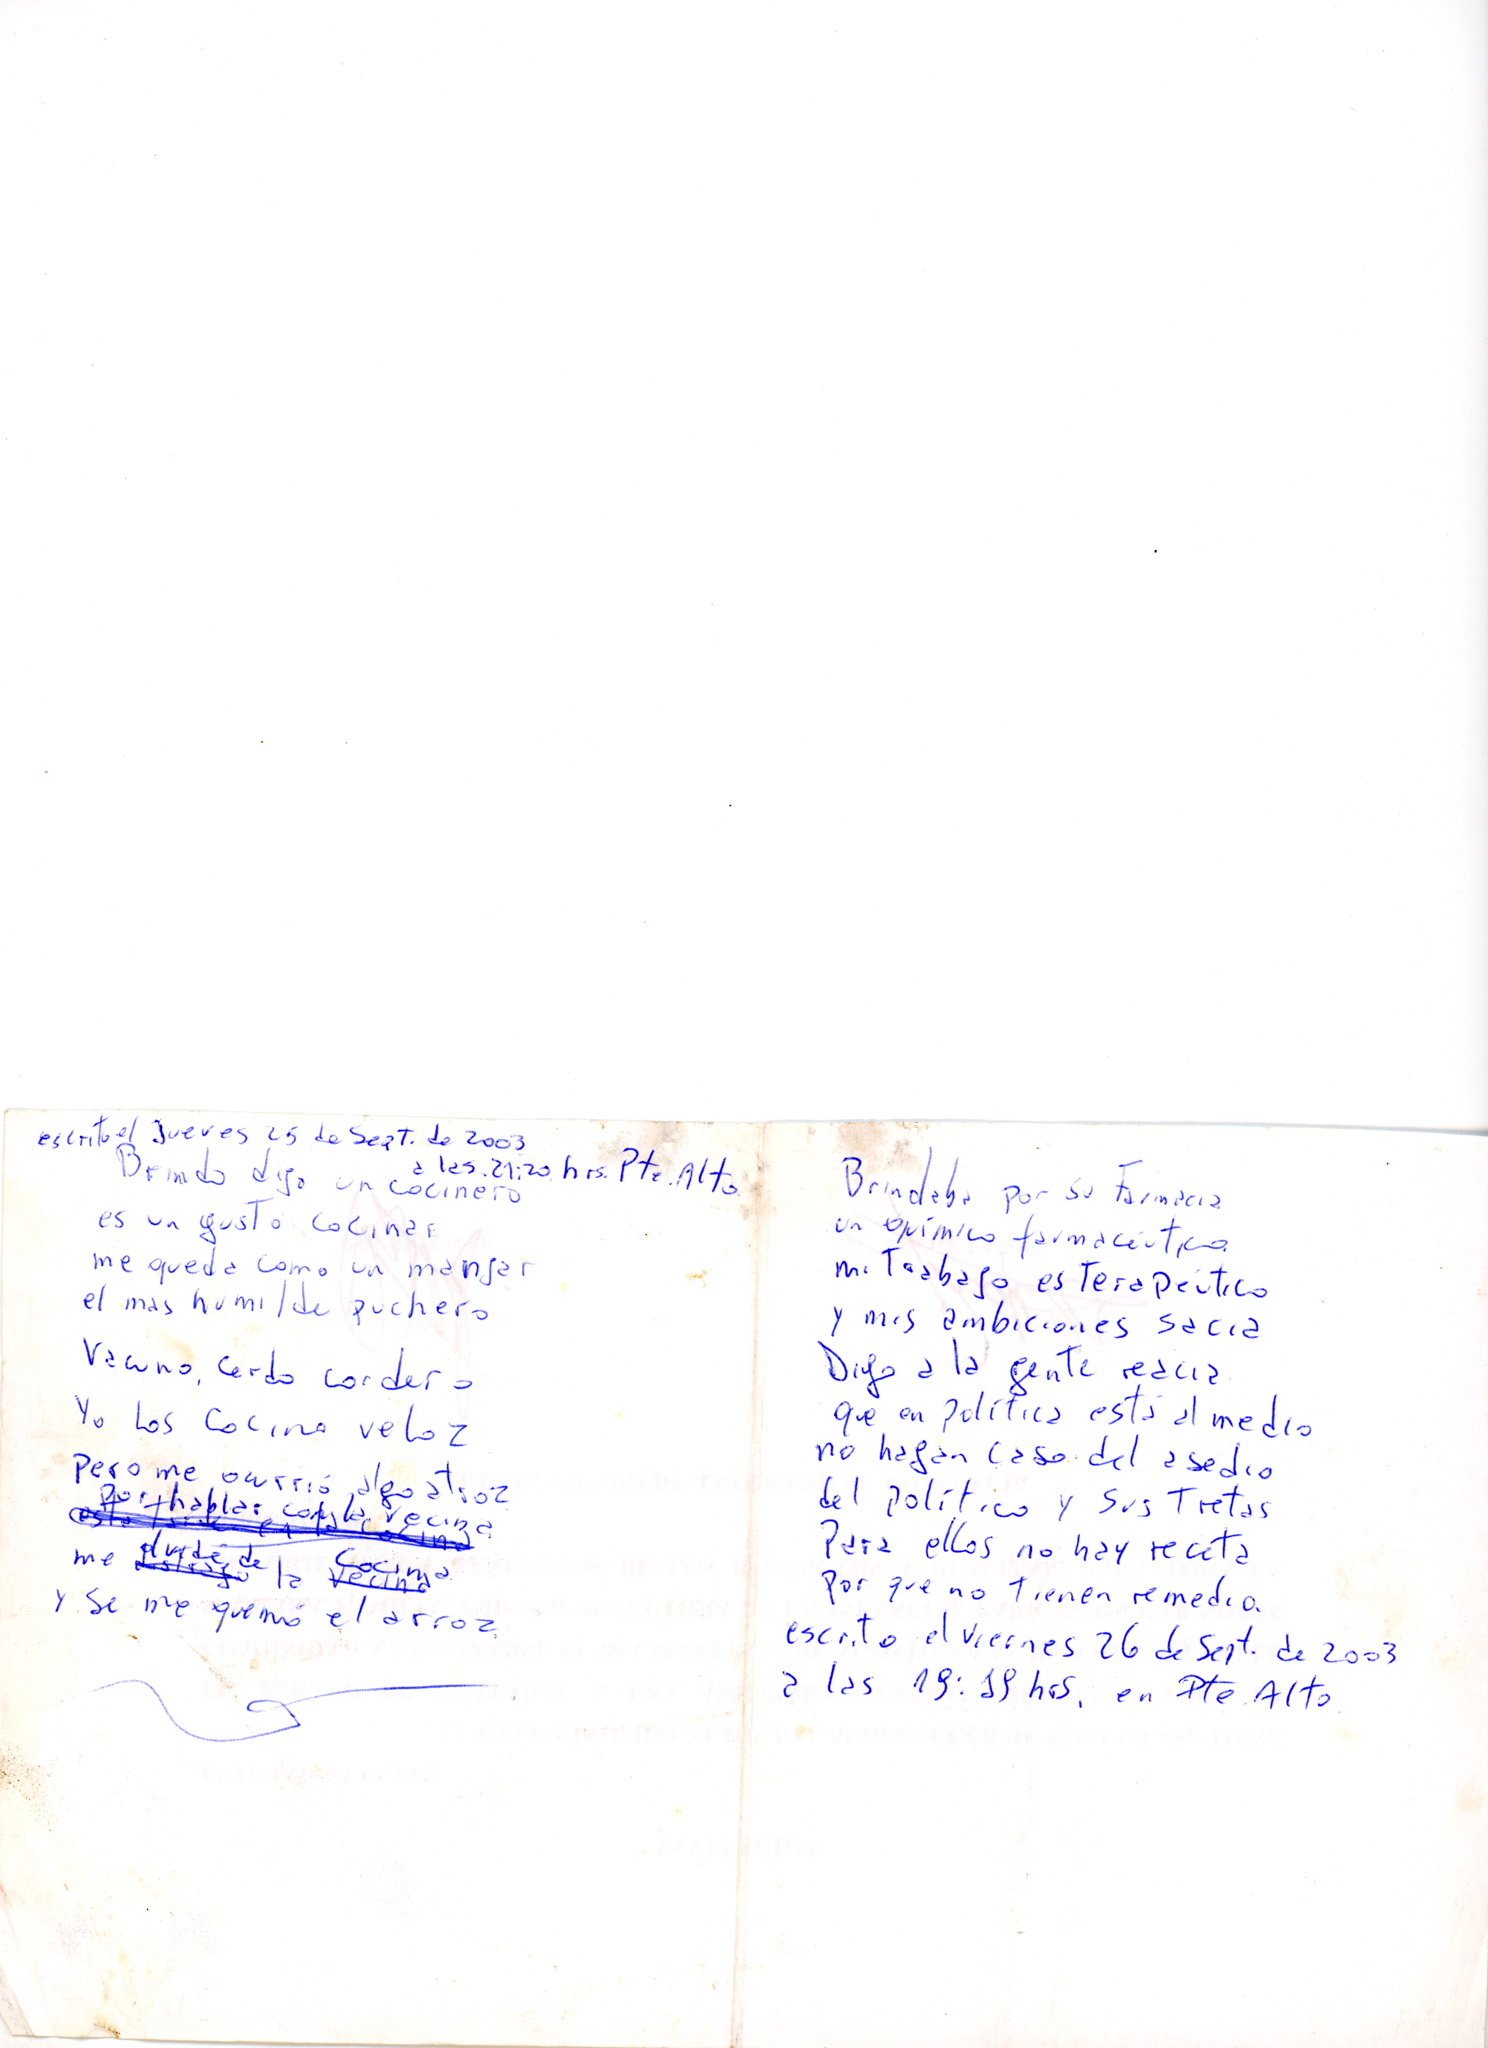 escrito el Jueves 25 de Sept. de 2003
a las 21:20 hrs. Pte. Alto
Brindo dijo un cocinero
es un gusto cocinar
me queda como un manjar
el mas humilde puchero
Vacuno, cerdo cordero
Yo los cocino veloz
Pero me ocurrió algo atroz
Por hablar con la vecina
esta tarde en la cocina
me olvidé de la cocina
vecina
y se me quemó el arroz
Brindaba por su Farmacia
un químico farmacéutico
mi Trabajo es Terapéutico
y mis ambiciones sacia
Digo a la gente reacia
que en política está al medio
no hagan caso del asedio
del político y sus Tretas
Para ellos no hay receta
Por que no tienen remedio.
escrito el Viernes 26 de Sept. de 2003
a las 19:19 hrs, en Pte. Alto